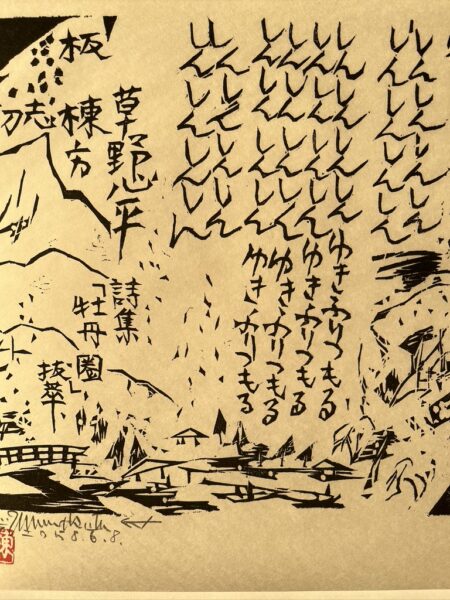 しんしんしんしん
しんしんしんしん
しんしんしんしんゆきふりつもる
しんしんしんしんゆきふりつもる
しんしんしんしんゆきふりつもる
しんしんしんしんゆきふりつもる
しんしんしんしん
しんしんしんしん
草野心平
詩集
「牡丹圏」
抜萃
板 棟方
志